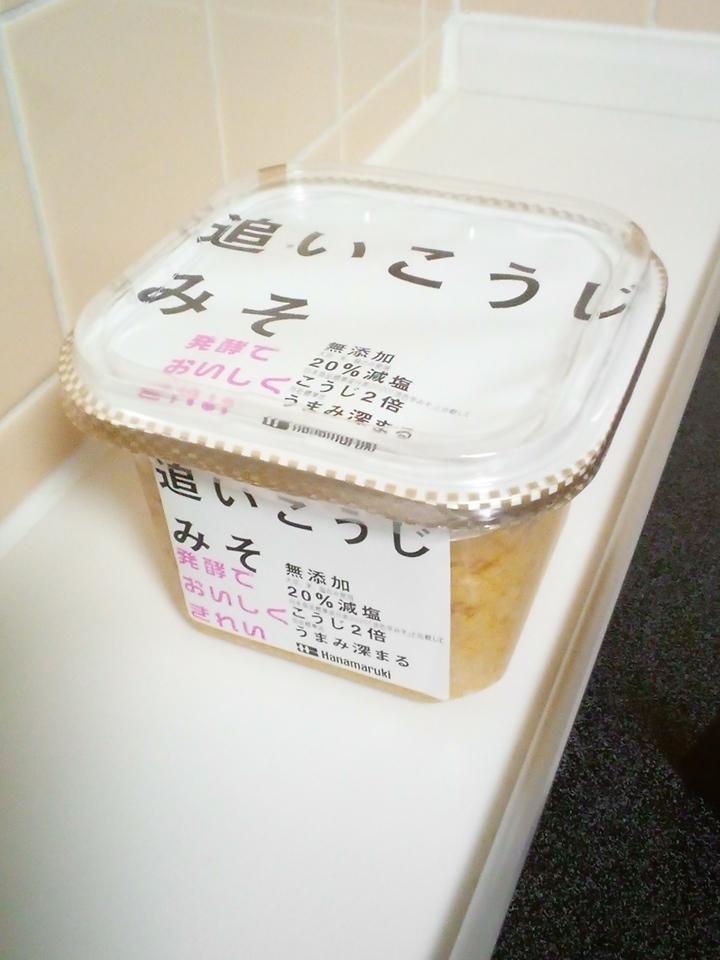 追いこうじ
みそ
発酵で
おいしく
無添加
20%減塩
こうじ2倍
うまみ深まる
追いこうじ
みそ
発酵で
おいしく
きれい
無添加
20%減塩
こうじ2倍
うまみ深まる
Hanamaruki